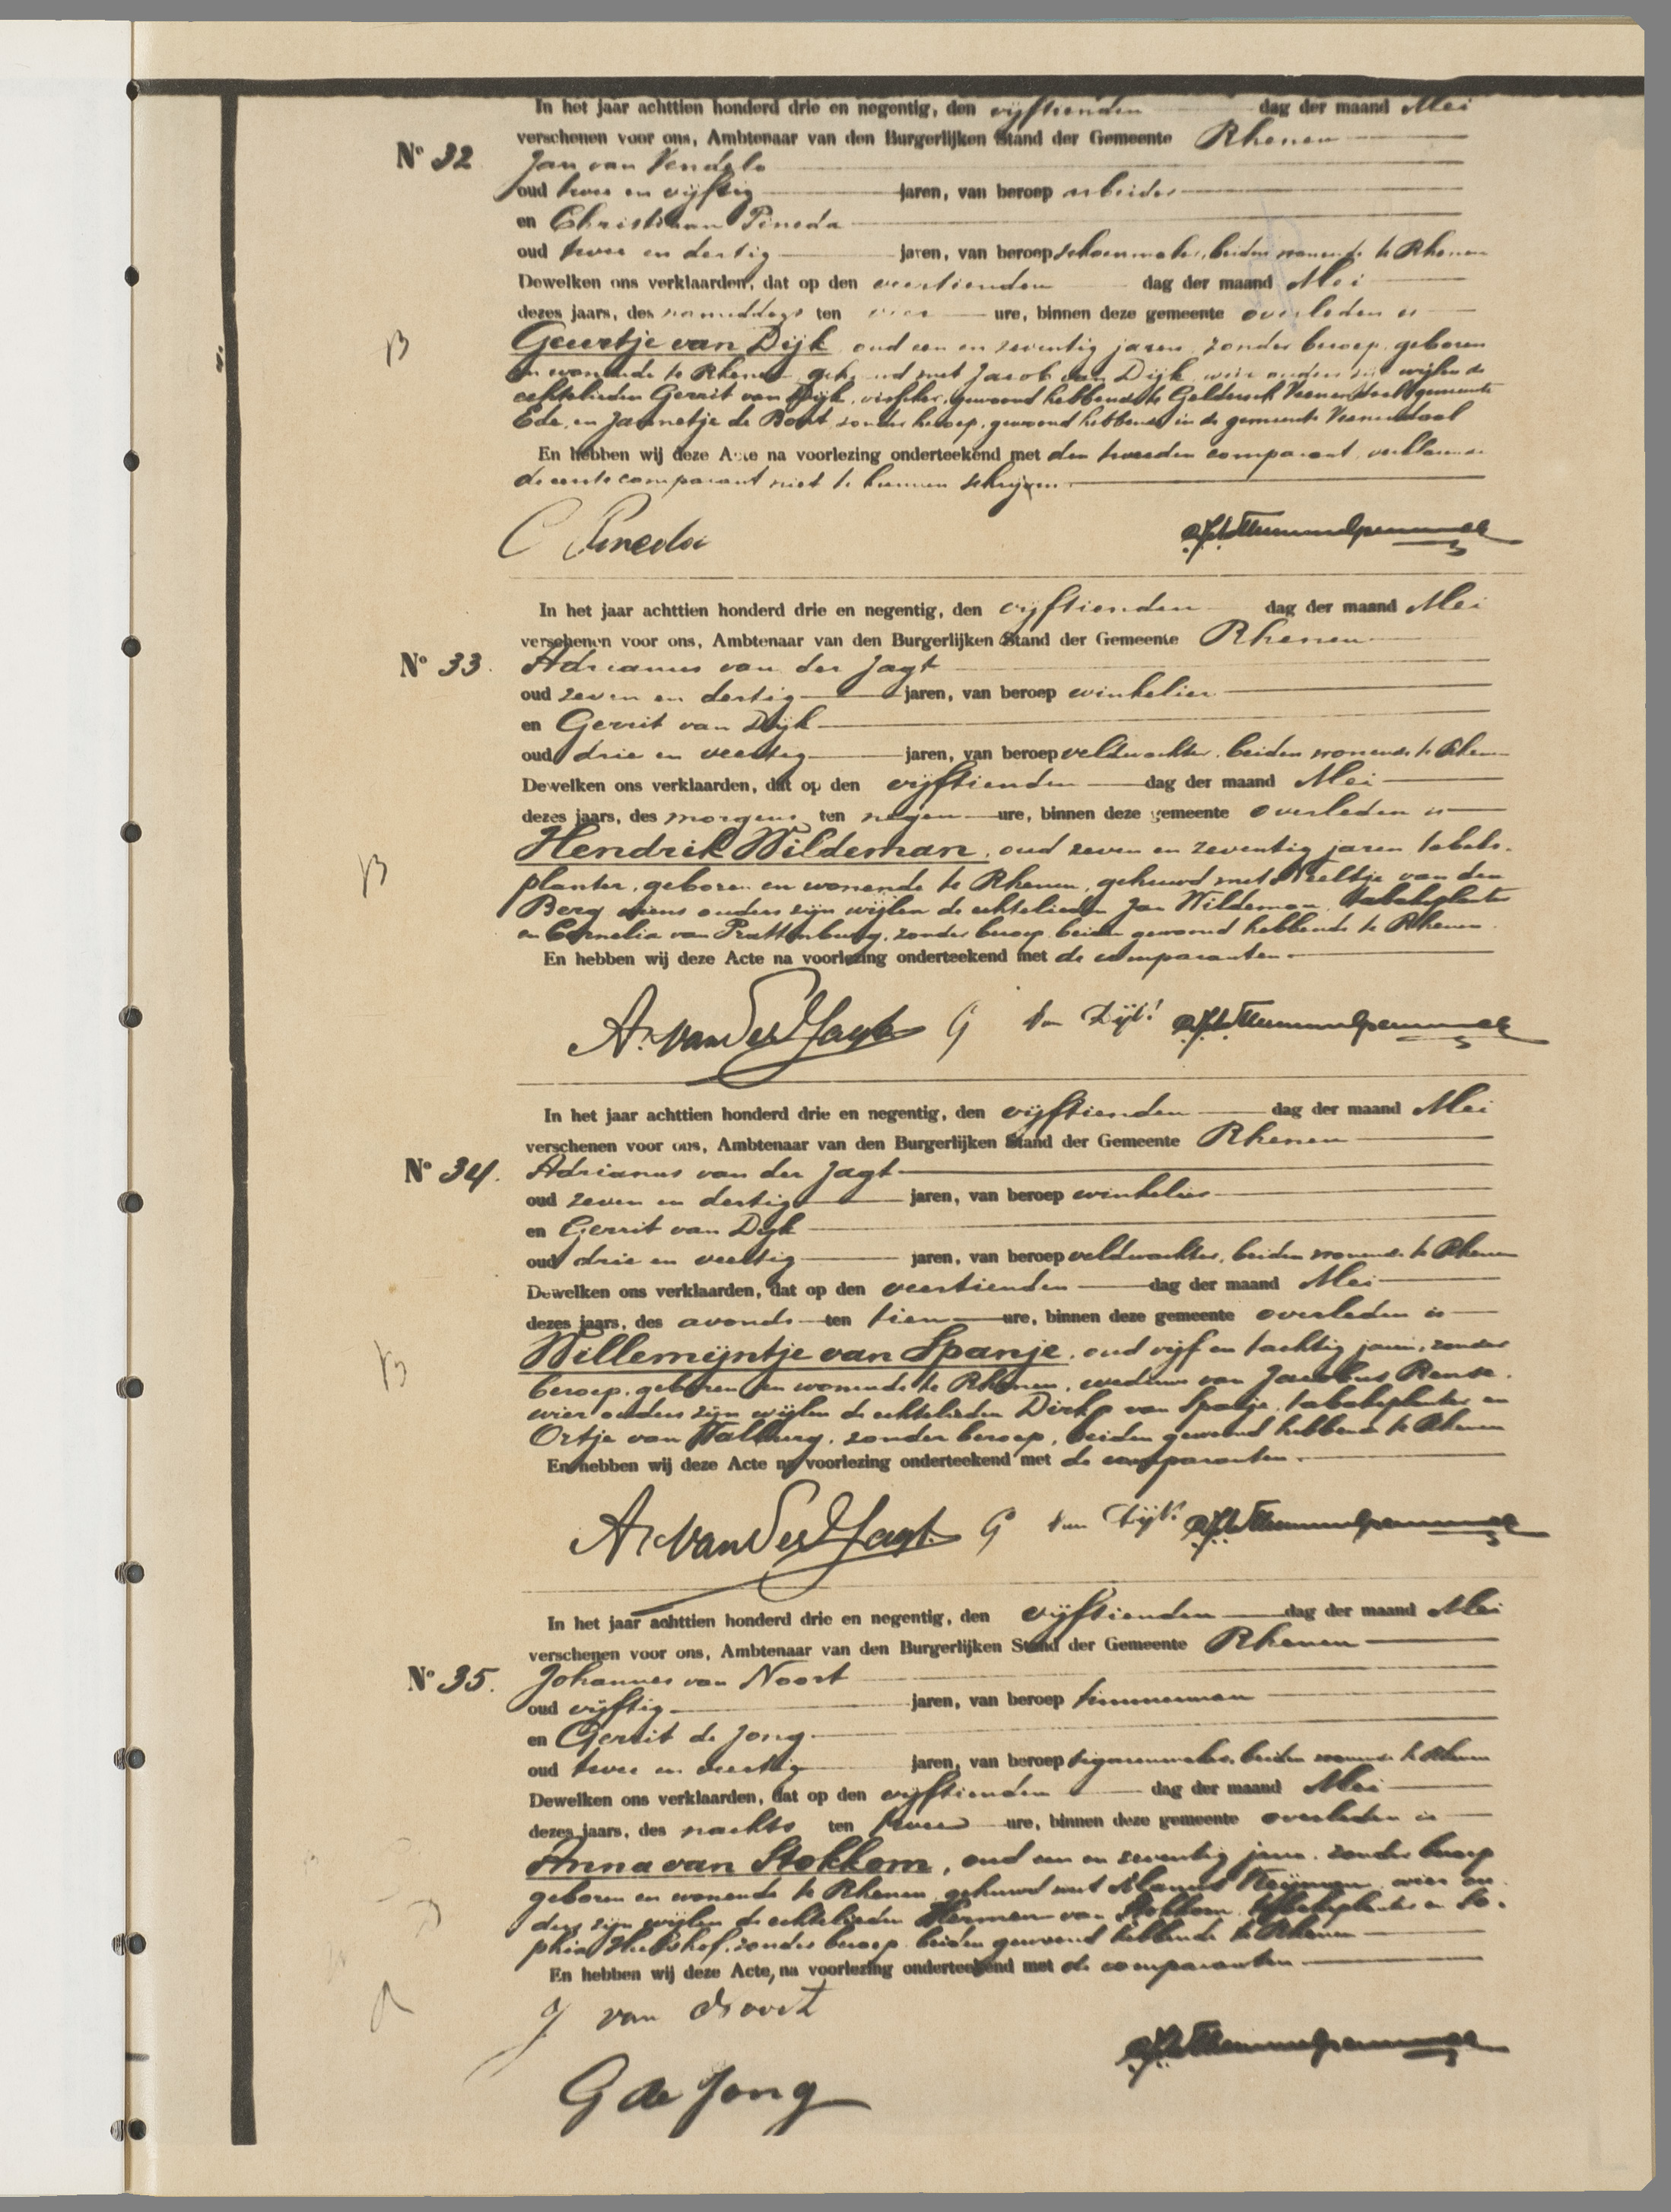 In het jaar achttien honderd drie en negentig, den vijftienden dag der maand Mei
verschenen voor ons, Ambtenaar van den Burgerlijken Stand der Gemeente Rhenen
No 32 Jan van Vendelo
oud twee en vijftig jaren, van beroep arbeider
en Christiaan Pineda
oud twee en dertig jaren, van beroep schoenmaker, beiden wonende te Rhenen
Dewelken ons verklaarden, dat op den veertienden dag der maand Mei
dezes jaars, des namiddags ten vier ure, binnen deze gemeente overleden is
B Geurtje van Dijk, oud een en zeventig jaren, zonder beroep, geboren
en wonende te Rhenen, gehuwd met Jacob van Dijk, wier ouders zijn wijlen de
echtelieden Gerrit van Dijk, visscher, gewoond hebbende te Geldersch Veenendaal gemeente
Ede, en Jannetje de Bont, zonder beroep, gewoond hebbende in de gemeente Veenendaal
En hebben wij deze Acte na voorlezing onderteekend met den tweeden comparant, verklarende
de eerste comparant niet te kunnen schrijven.
C Pineda
In het jaar achttien honderd drie en negentig, den vijftienden dag der maand Mei
verschenen voor ons, Ambtenaar van den Burgerlijken Stand der Gemeente Rhenen
No 33. Adrianus van der Jagt
oud zeven en dertig jaren, van beroep winkelier
en Gerrit van Dijk
oud drie en veertig jaren, van beroep veldwachter, beiden wonende te Rhenen
Dewelken ons verklaarden, dat op den vijftienden dag der maand Mei
dezes jaars, des morgens ten negen ure, binnen deze gemeente overleden is
B Hendrik Wildeman, oud zeven en zeventig jaren tabaks-
planter, geboren en wonende te Rhenen, gehuwd met Neeltje van den
Berg wiens ouders zijn wijlen de echtelieden Jan Wildeman, tabaksplanter
en Cornelia van Prattenburg, zonder beroep, beiden gewoond hebbende te Rhenen.
En hebben wij deze Acte na voorlezing onderteekend met de comparanten.
A. van der Jagt G van Dijk
In het jaar achttien honderd drie en negentig, den vijftienden dag der maand Mei
verschenen voor ons, Ambtenaar van den Burgerlijken Stand der Gemeente Rhenen
No 34. Adrianus van der Jagt
oud zeven en dertig jaren, van beroep winkelier
en Gerrit van Dijk
oud drie en veertig jaren, van beroep veldwachter, beiden wonende te Rhenen
Dewelken ons verklaarden, dat op den veertienden dag der maand Mei
dezes jaars, des avonds ten tien ure, binnen deze gemeente overleden is
B Willemijntje van Spanje, oud vijf en tachtig jaren, zonder
beroep, geboren en wonende te Rhenen, weduwe van Jacobus Rense.
wier ouders zijn wijlen de echtelieden Dirk van Spanje, tabaksplanter en
Ortje van Walburg, zonder beroep, beiden gewoond hebbende te Rhenen
En hebben wij deze Acte na voorlezing onderteekend met de comparanten.
A. van der Jagt. G van Dijk
In het jaar achttien honderd drie en negentig, den vijftienden dag der maand Mei
verschenen voor ons, Ambtenaar van den Burgerlijken Stand der Gemeente Rhenen
No 35. Johannes van Noort
oud vijftig jaren, van beroep timmerman
en Gerrit de Jong
oud twee en veertig jaren, van beroep sigarenmaker, beiden wonende te Rhenen
Dewelken ons verklaarden, dat op den vijftienden dag der maand Mei
dezes jaars, des nachts ten twee ure, binnen deze gemeente overleden is
Anna van Stokkom, oud een en zeventig jaren, zonder beroep
geboren en wonende te Rhenen, gehuwd met wier ou-
ders zijn wijlen de echtelieden Hermen van Stokkom, tabaksplanter en So-
phia zonder beroep beiden gewoond hebbende te Rhenen
En hebben wij deze Acte, na voorlezing onderteekend met de comparanten
J van Noort
G de Jong